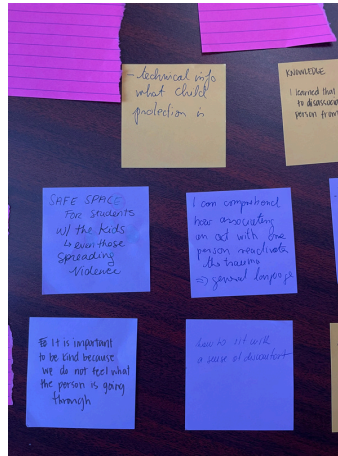 - technical info
what child
protection is
KNOWLEDGE
I learned that
to disassociate
person from
SAFE SPACE
For students
w/ the kids
↳ even those
spreading
violence
I can comprehend
how associating
an act with one
person reactivate
the trauma
=> general language
It is important
to be kind because
we do not feel what
the person is going
through
how to sit with
a sense of discomfort